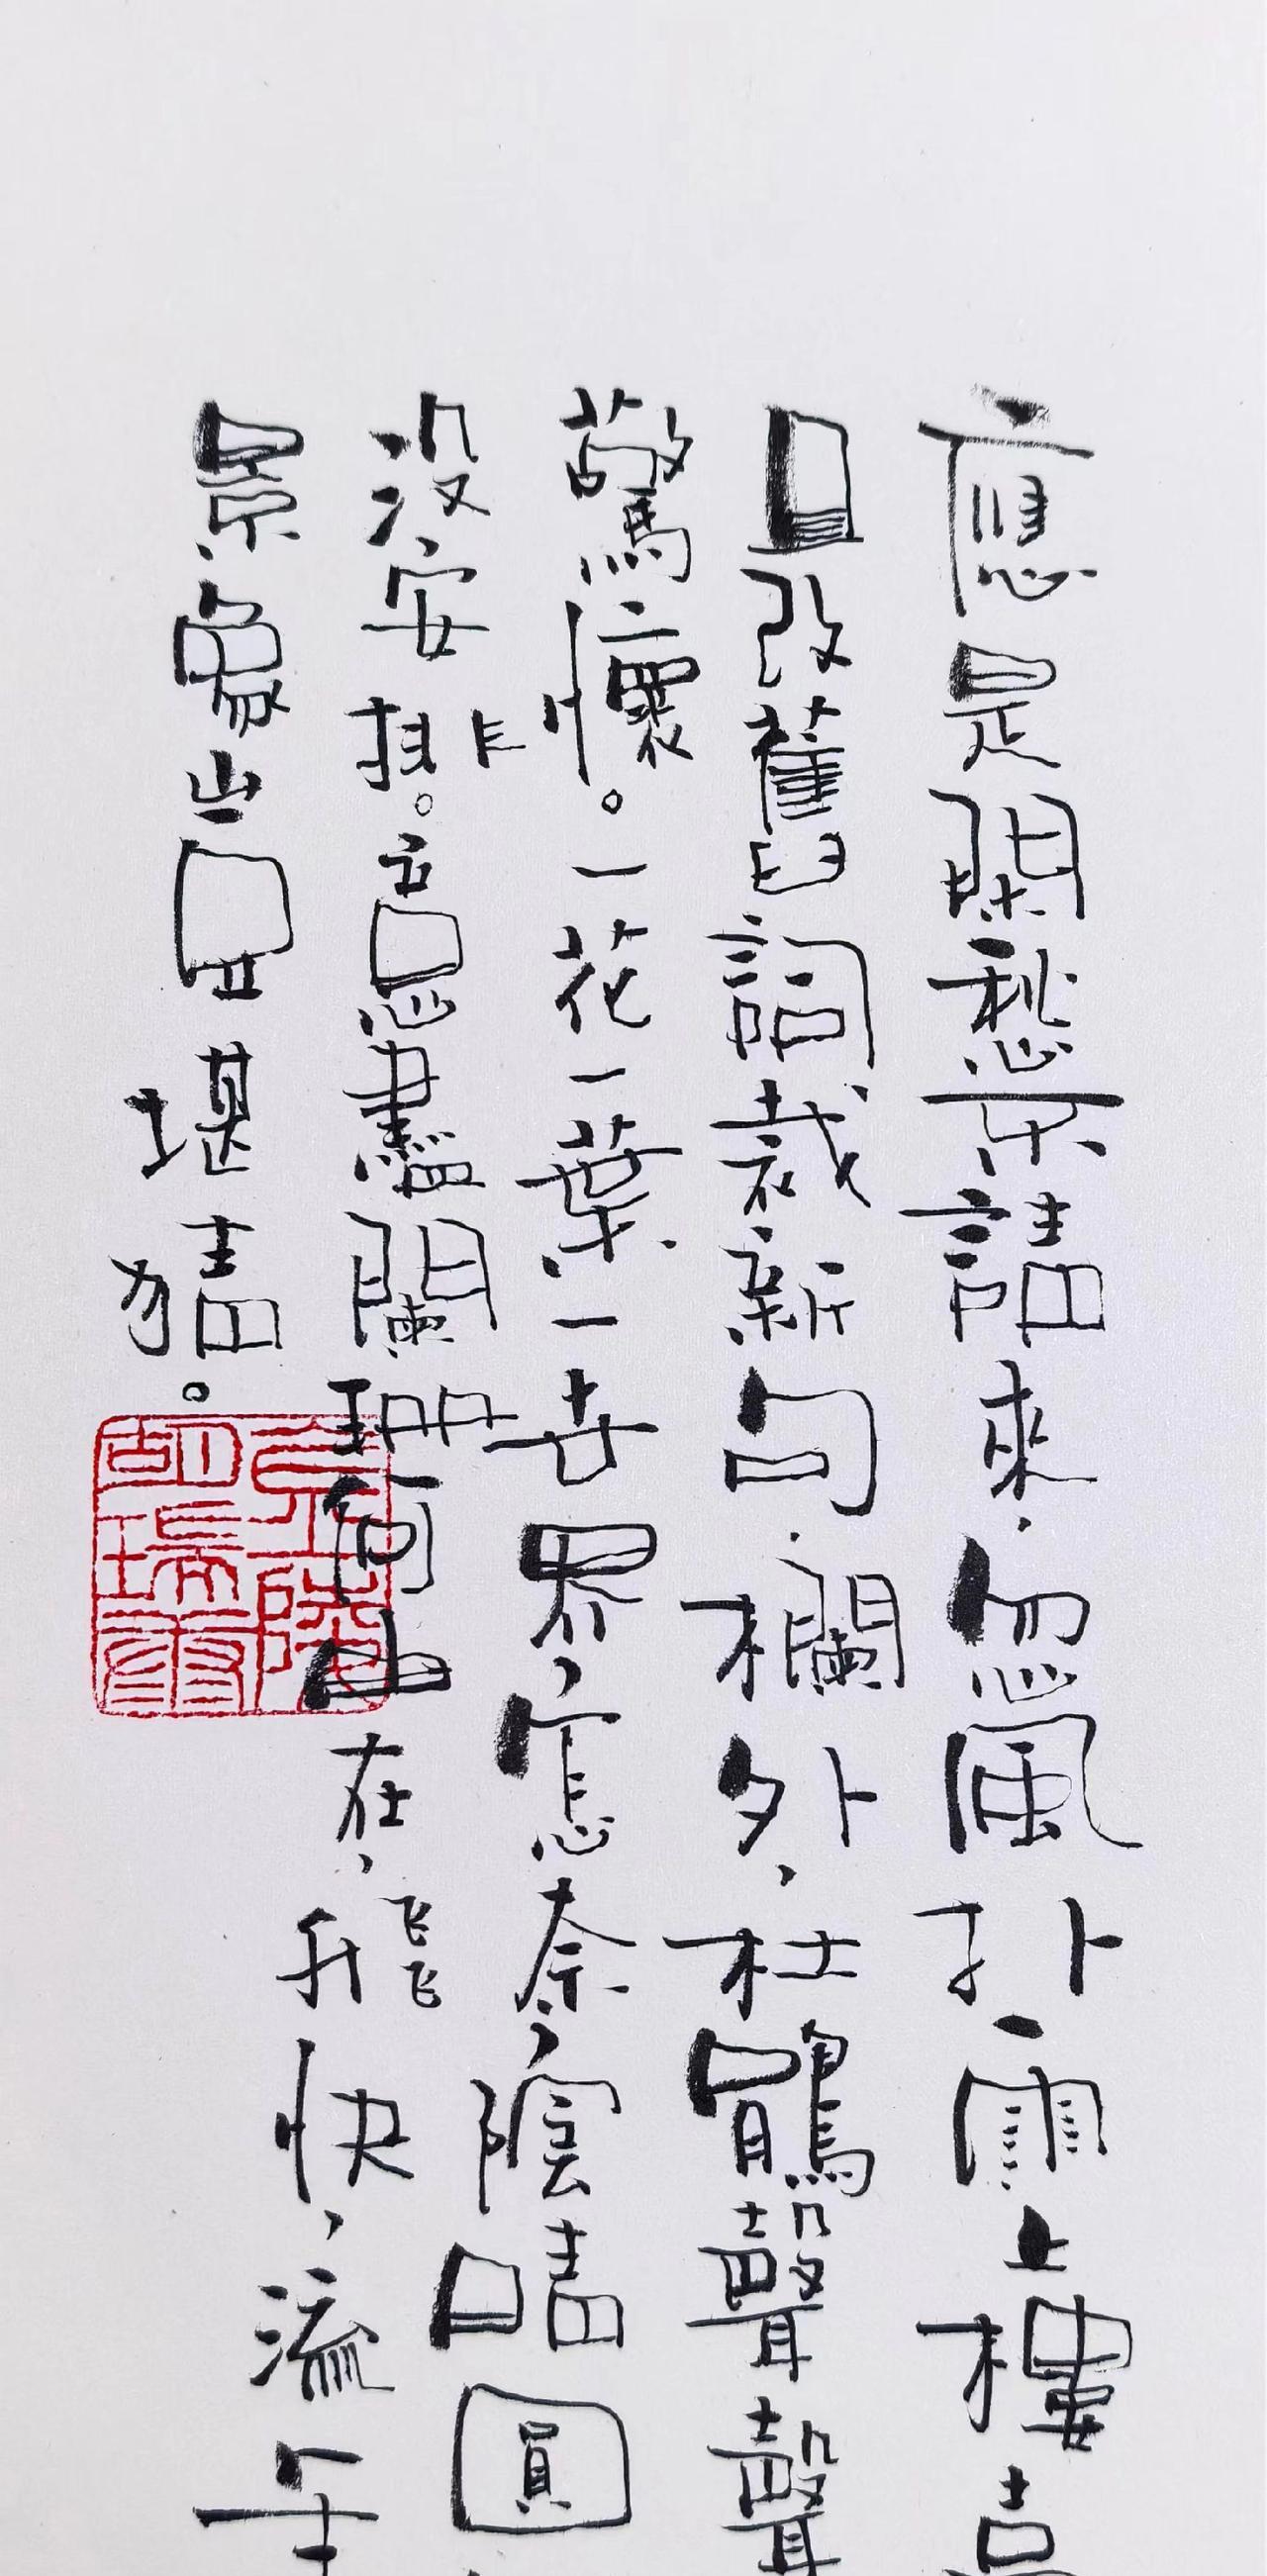 應是閑愁不請來，忽風扑雨上樓
且改舊詞裁新句，欄外，杜鵑聲聲
驚懷。一花一葉一世界，怎奈，陰晴圓
没安排。意盡闌珊何由在，飛快，流年
景象豈堪猜。